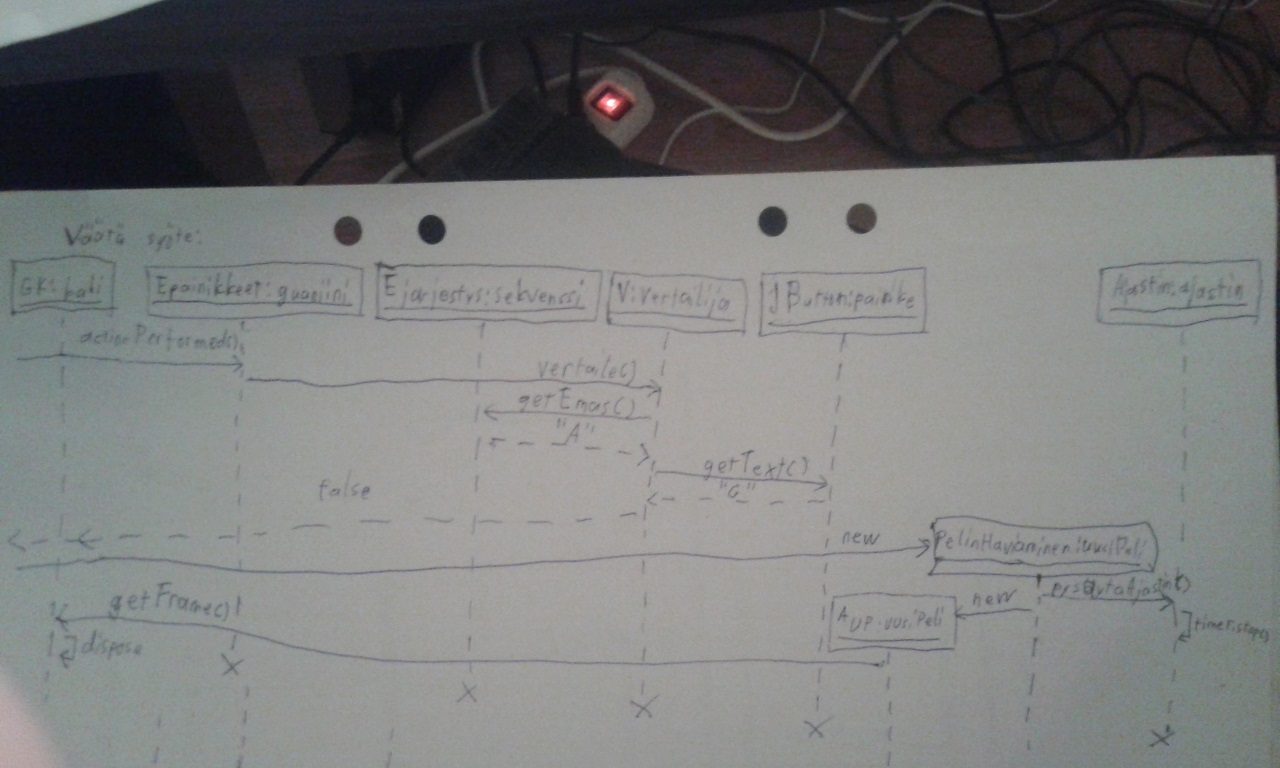 Väärä syöte:
GK:
Epainikkeet:
Ejarjestys:sekvenssi
V:vertailija
JButton:painike
Ajastin:ajastin
actionPerformed()
vertaile()
getEmas()
"A"
getText()
"G"
false
new
PelinHaviaminen:uusiPeli
new
AUP:uusiPeli
getFrame()
dispose